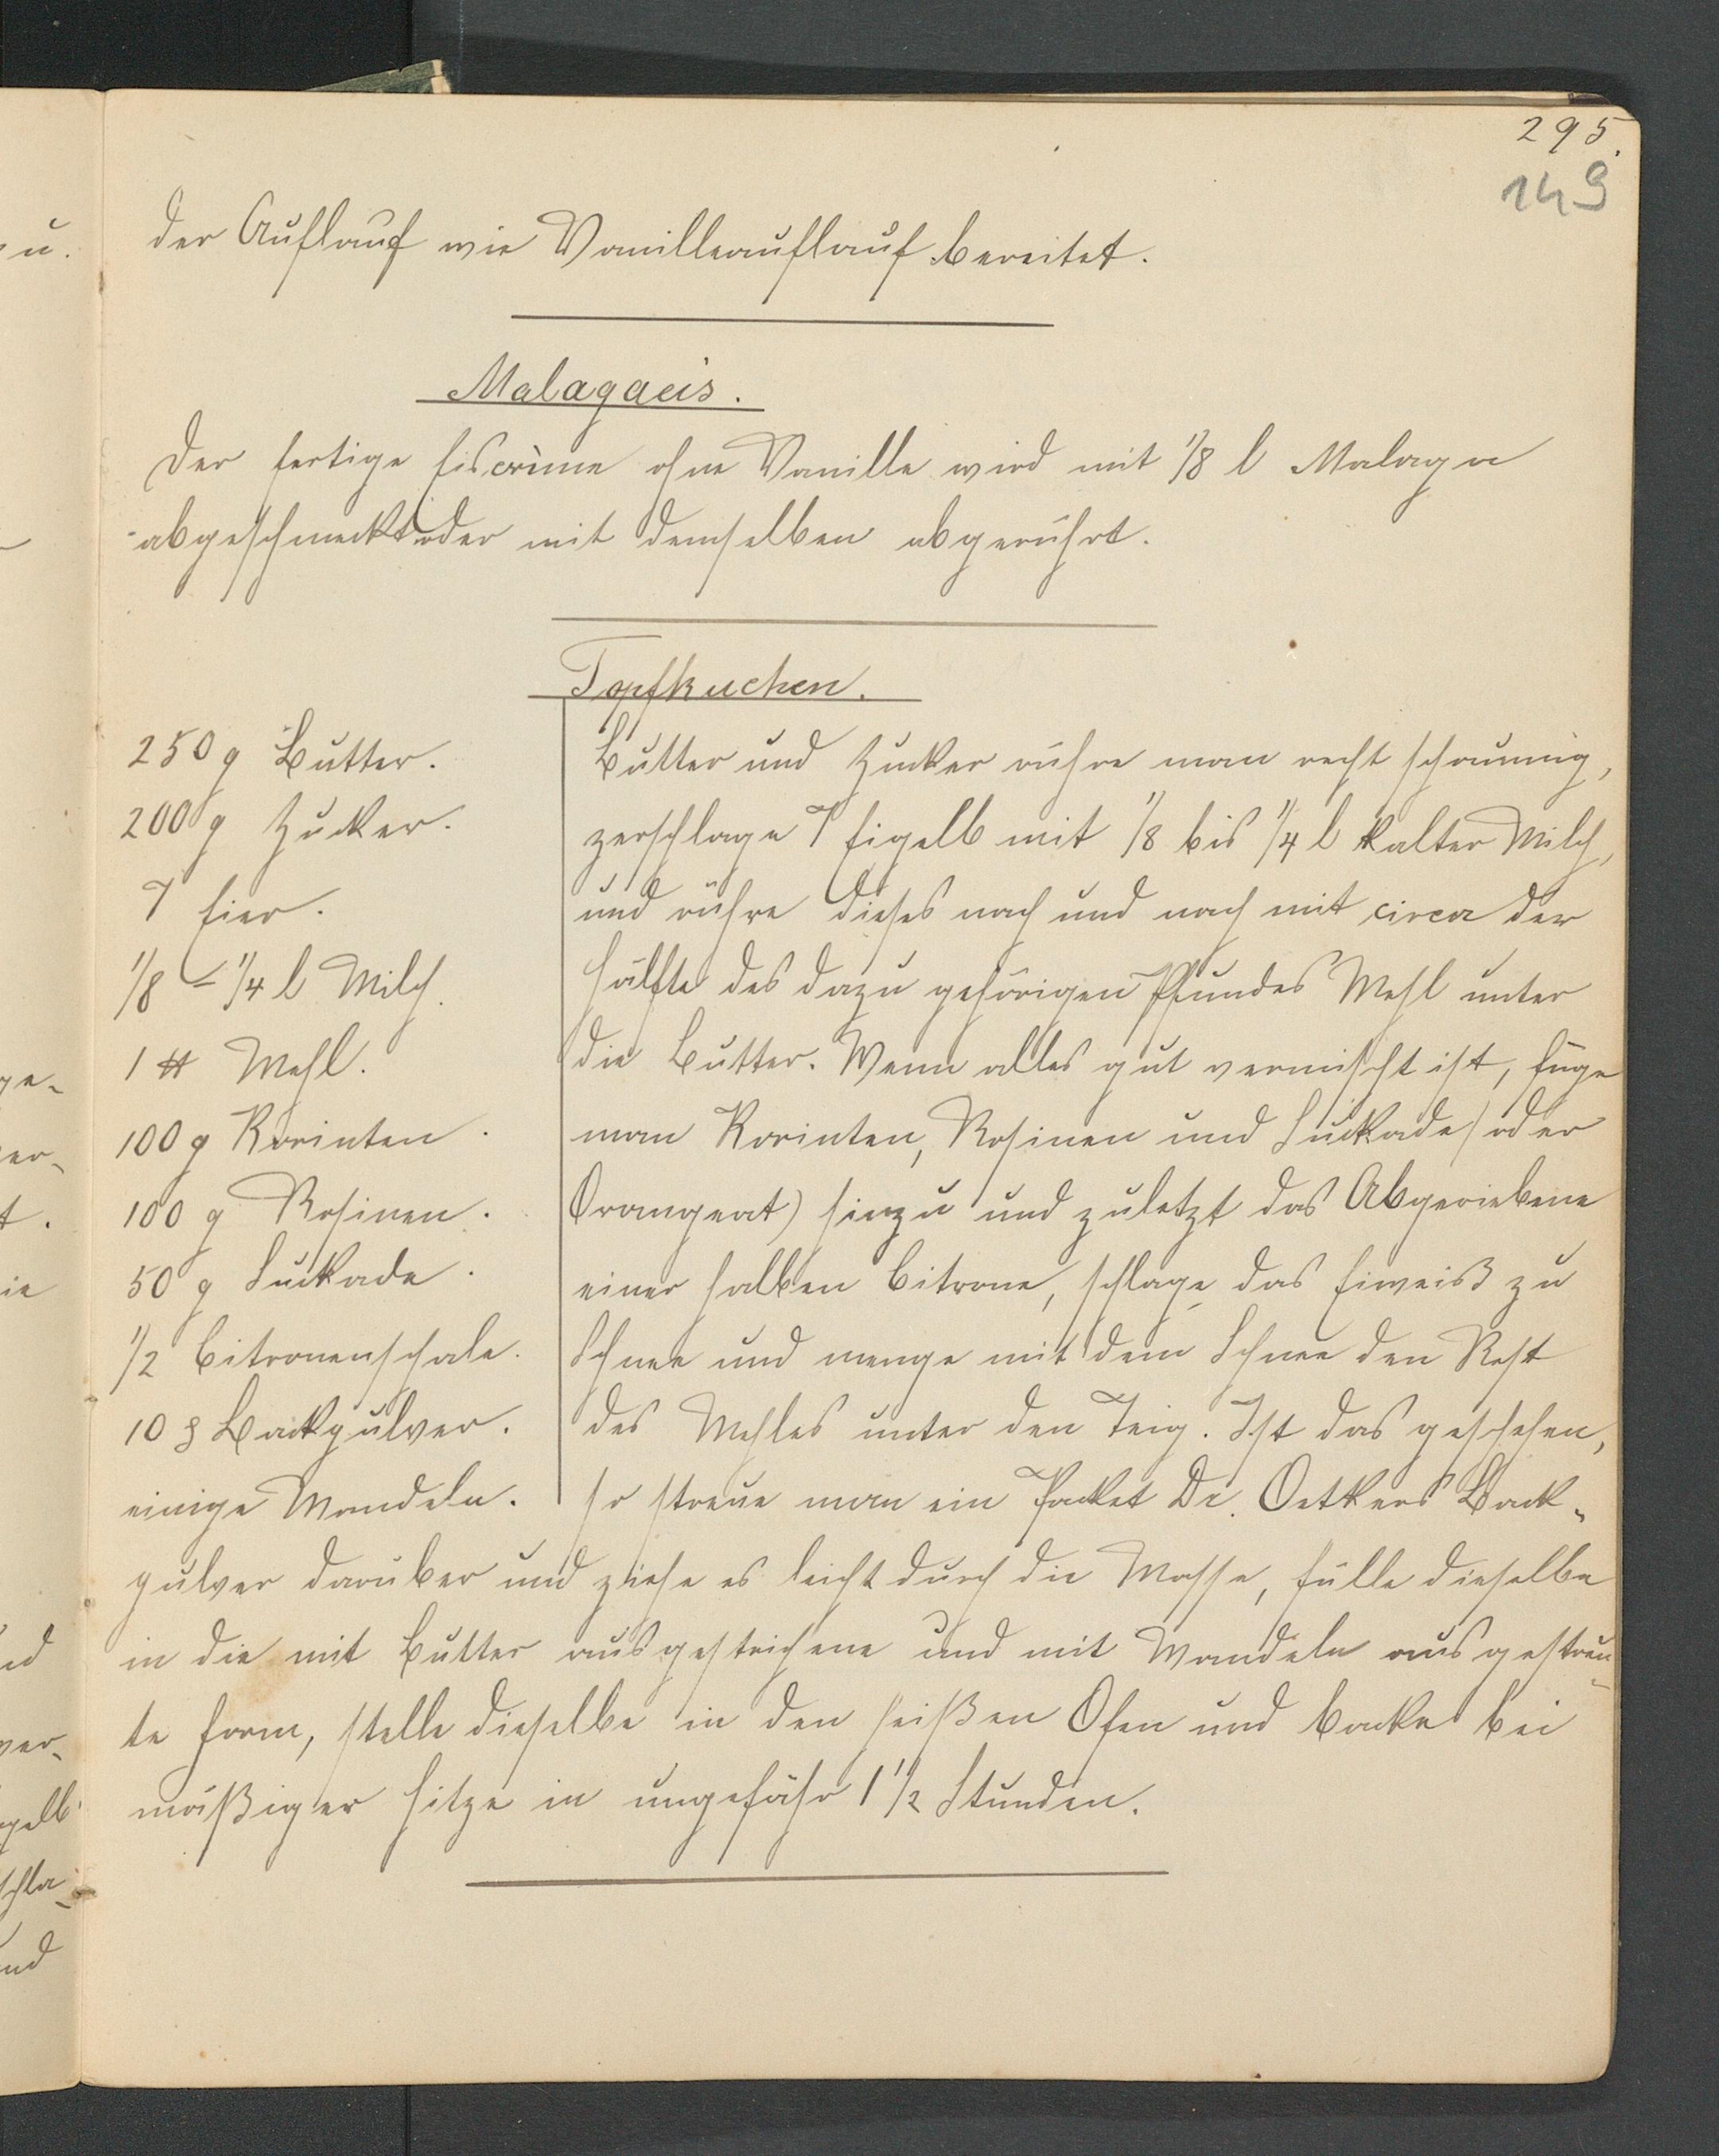 295.
149
der Auflauf wie Vanilleauflauf bereitet.
Malagaeis.
Der fertige Eiscrème ohne Vanille wird mit 1/8 l Malaga
abgeschmeckt oder mit demselben abgerührt.
Topfkuchen.
250 g Butter.
200 g Zucker.
7 Eier.
1/8 - 1/4 l Milch.
1 ℔ Mehl.
100 g Korinten.
100 g Rosinen.
50 g Suckade.
1/2 Citronenschale.
10 ₰ Backpulver.
einige Mandeln.
Butter und Zucker rühre man recht schaumig,
zerschlage 7 Eigelb mit 1/8 bis 1/4 l kalter Milch,
und rühre dieses nach und nach mit circa der
Hälfte des dazu gehörigen Pfundes Mehl unter
die Butter. Wenn alles gut vermischt ist, füge
man Korinten, Rosinen und Suckade (oder
Orangeat) hinzu und zuletzt das Abgeriebene
einer halben Citrone, schlage das Eiweiß zu
Schnee und menge mit dem Schnee den Rest
des Mehles unter den Teig. Ist das geschehen,
so streue man ein Packet Dr. Oetkers Back-
pulver darüber und ziehe es leicht durch die Masse, fülle dieselbe
in die mit Butter ausgestrichene und mit Mandeln ausgestreu-
te Form, stelle dieselbe in den heißen Ofen und backe bei
mäßiger Hitze in ungefähr 1 1/2 Stunden.